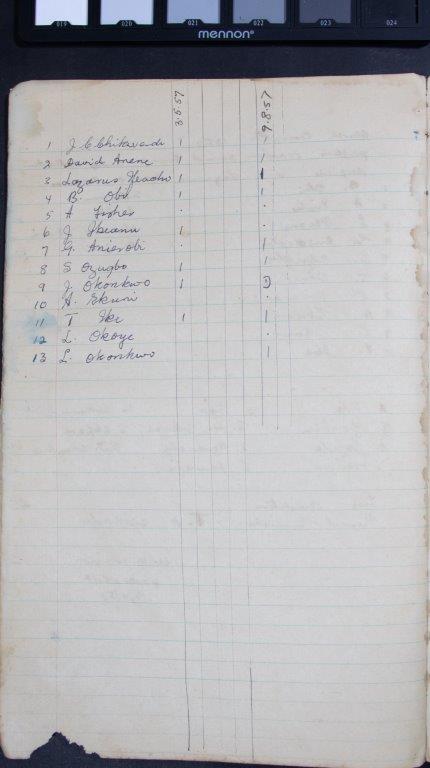 019 020 021 022 023 024
mennon®
3.5.57 9.8.57
1 J C Chikwadi 1 1
2 David Anene 1 1
3 Lazarus 1 1
4 B. Obi 1 1
5 A Fisher . .
6 J Ibeanu 1 .
7 G. Anierobi . 1
8 S Ozugbo 1 1
9 J. Okonkwo 1
10 A. Ekwu .
11 T Ike 1 1
12 L. Okoye .
13 L. Okonkwo 1